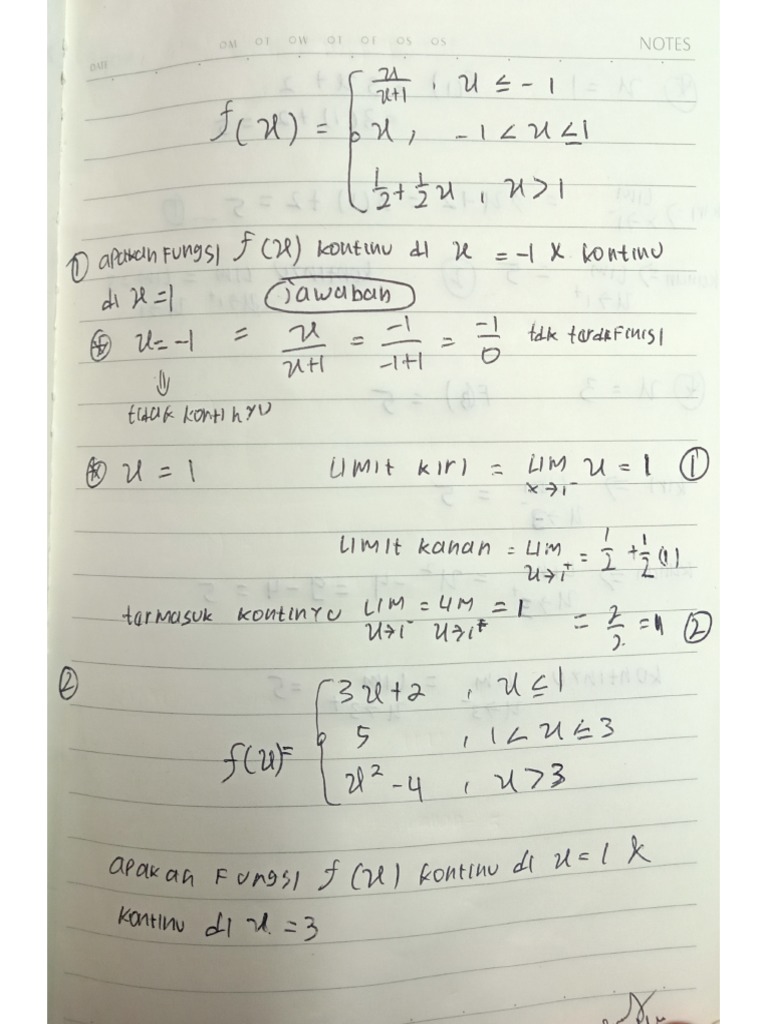 NOTES
f(x) = { x/x+1 , x ≤ -1
x , -1 < x ≤ 1
1/2 + 1/2 x , x > 1
① apakah Fungsi f(x) kontinu di x = -1 & kontinu
di x = 1 jawaban
⊛ x = -1 = x/x+1 = -1/-1+1 = -1/0 tdk tardefinisi
⇓
tidak kontinyu
⊛ x = 1 Limit kiri = Lim x→1⁻ x = 1 ①
Limit kanan = Lim x→1⁺ = 1/2 + 1/2 (1)
tarmasuk kontinyu Lim x→1⁻ = Lim x→1⁺ = 1 = 2/2 = 1 ②
②
f(x) = { 3x+2 , x ≤ 1
5 , 1 < x ≤ 3
x² - 4 , x > 3
apakah Fungsi f(x) kontinu di x = 1 &
kontinu di x = 3